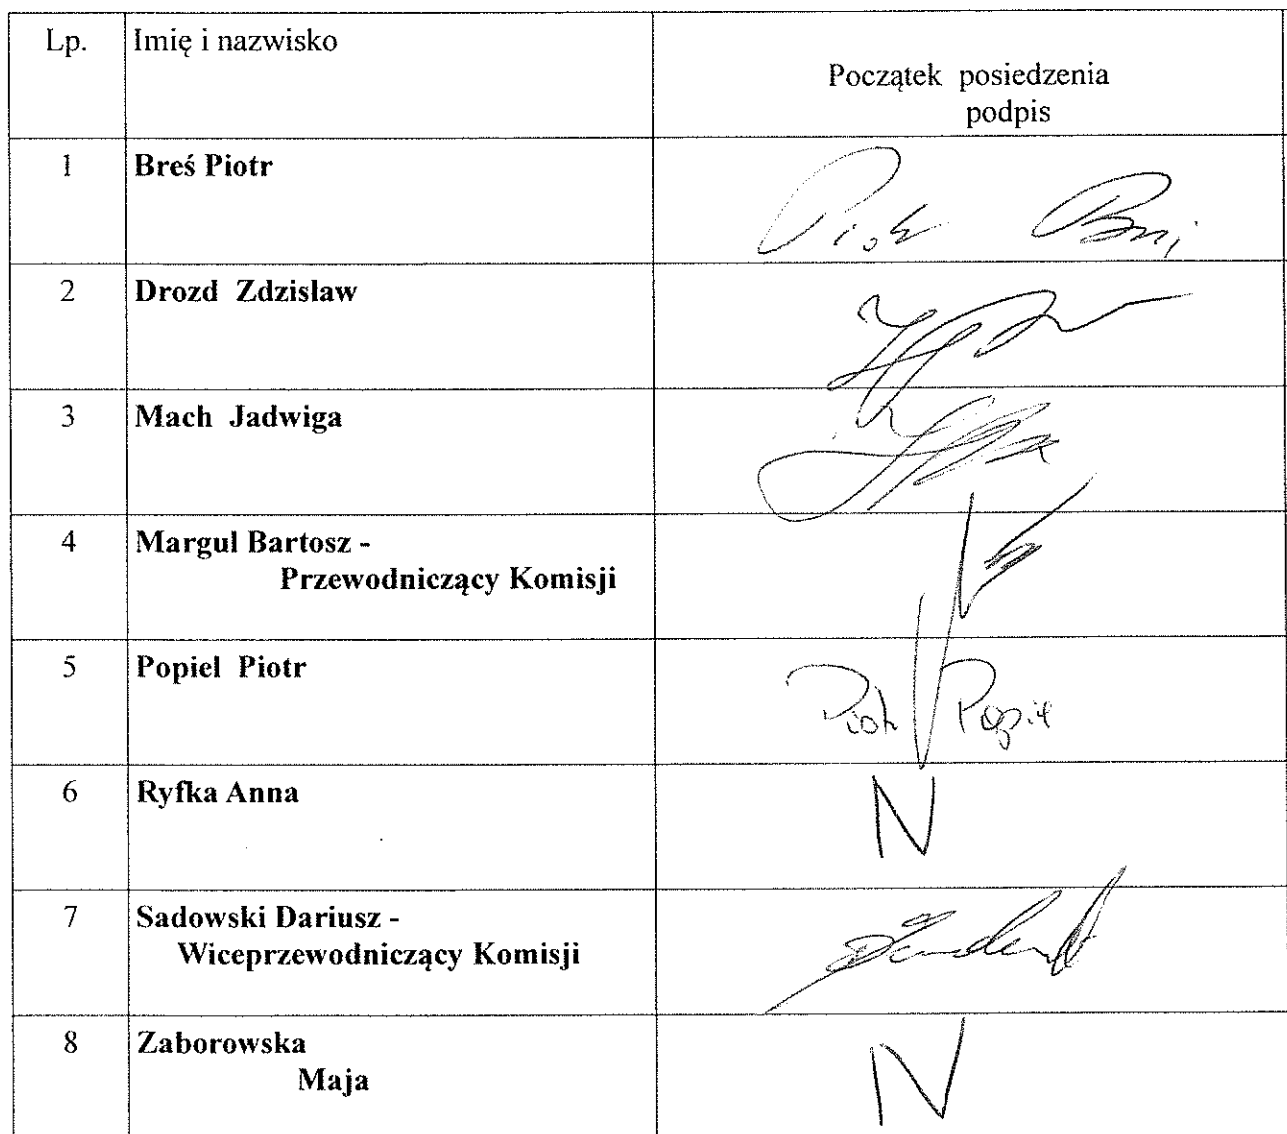 Lp. Imię i nazwisko
Początek posiedzenia
podpis
1 Breś Piotr
2 Drozd Zdzislaw
3 Mach Jadwiga
4 Margul Bartosz -
Przewodniczący Komisji
5 Popiel Piotr
Piotr Popiel
6 Ryfka Anna N
7 Sadowski Dariusz -
Wiceprzewodniczący Komisji
8 Zaborowska N
Maja